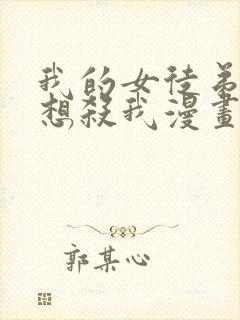 我的女徒弟
想殺我漫畫
郭某心